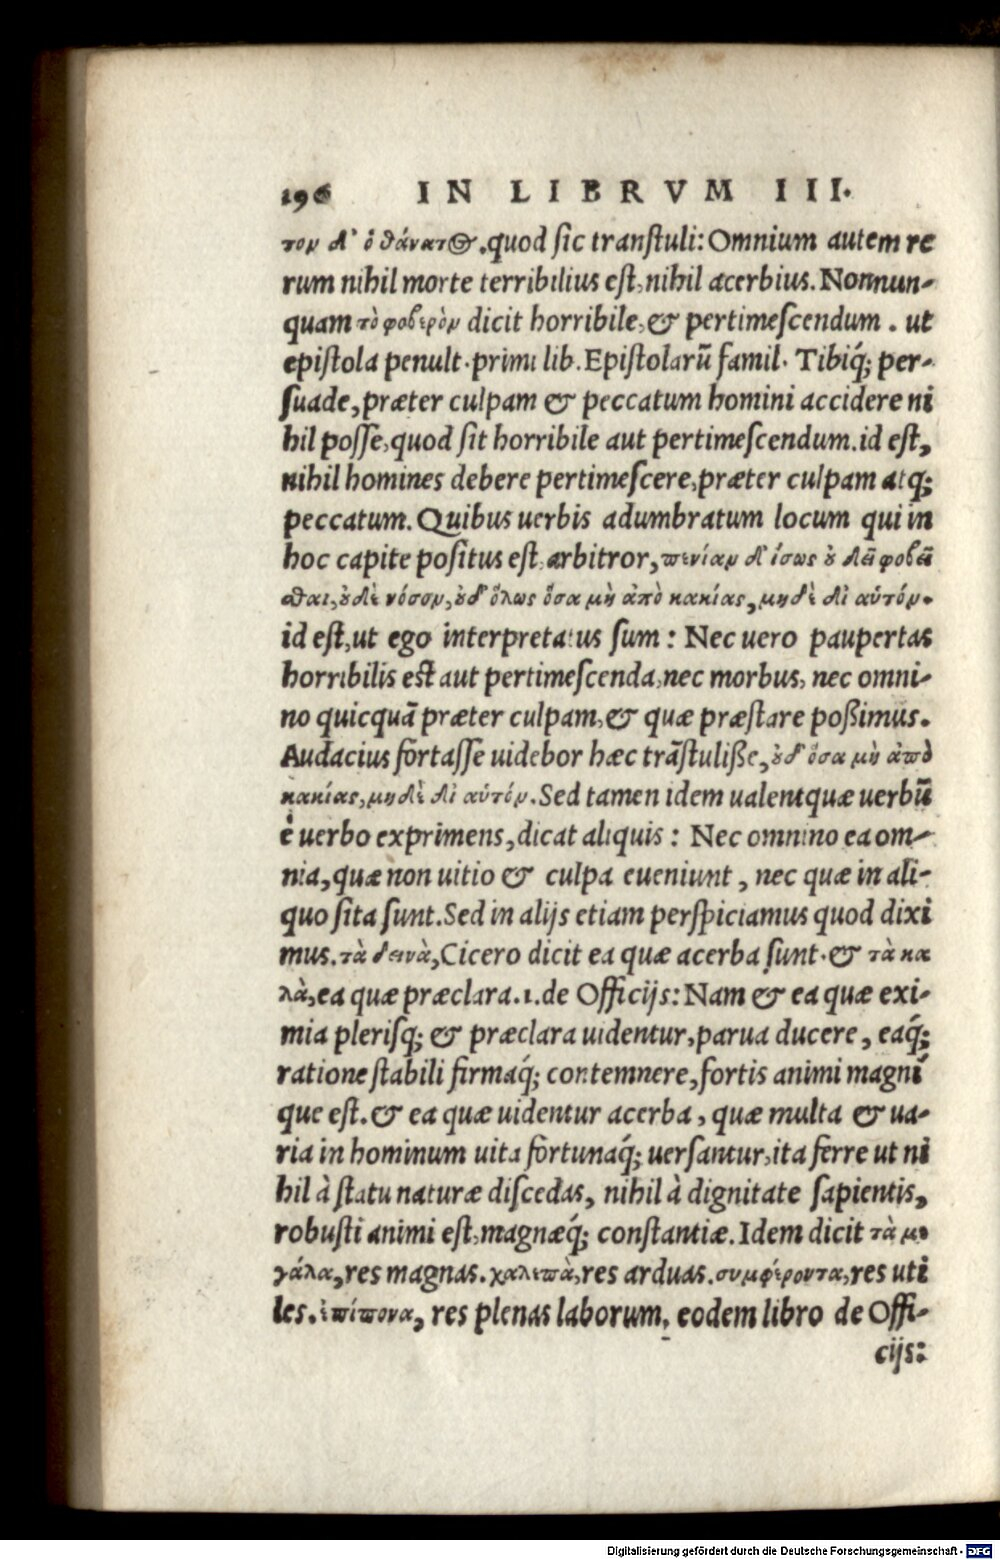 196 IN LIBRVM III.
τον δ' ὁ θάνατος. quod sic transtuli: Omnium autem re
rum nihil morte terribilius est, nihil acerbius. Nonnun-
quam τὸ φοβερὸν dicit horribile, & pertimescendum. ut
epistola penult. primi lib. Epistolarū famil. Tibiq́; per-
suade, præter culpam & peccatum homini accidere ni
hil posse, quod sit horribile aut pertimescendum. id est,
nihil homines debere pertimescere, præter culpam atq;
peccatum. Quibus uerbis adumbratum locum qui in
hoc capite positus est arbitror, πενίαν δ' ἴσως ȣ δεῖ φοβεῖ
σθαι, ȣδὲ νόσον, ȣδ' ὅλως ὅσα μὴ ἀπὸ κακίας, μηδὲ δι αὑτόν.
id est, ut ego interpretatus sum: Nec uero paupertas
horribilis est aut pertimescenda, nec morbus, nec omni-
no quicquā præter culpam, & quæ præstare poßimus.
Audacius fortasse uidebor hæc trāstulisse, ȣδ' ὅσα μὴ ἀπὸ
κακίας, μηδὲ δι αὑτόν. Sed tamen idem ualent quæ uerbū
è uerbo exprimens, dicat aliquis: Nec omnino ea om-
nia, quæ non uitio & culpa eueniunt, nec quæ in ali-
quo sita sunt. Sed in alijs etiam perspiciamus quod dixi
mus. τὰ δεινὰ, Cicero dicit ea quæ acerba sunt. & τὰ κα
λὰ, ea quæ præclara. 1. de Officijs: Nam & ea quæ exi-
mia plerisq; & præclara uidentur, parua ducere, eaq́;
ratione stabili firmaq́; contemnere, fortis animi magni
que est. & ea quæ uidentur acerba, quæ multa & ua-
ria in hominum uita fortunaq́; uersantur, ita ferre ut ni
hil à statu naturæ discedas, nihil à dignitate sapientis,
robusti animi est, magnæq́; constantiæ. Idem dicit τὰ με
γάλα, res magnas. χαλεπὰ, res arduas. συμφέροντα, res uti
les. ἐπίπονα, res plenas laborum, eodem libro de Offi-
cijs:
Digitalisierung gefördert durch die Deutsche Forschungsgemeinschaft - DFG